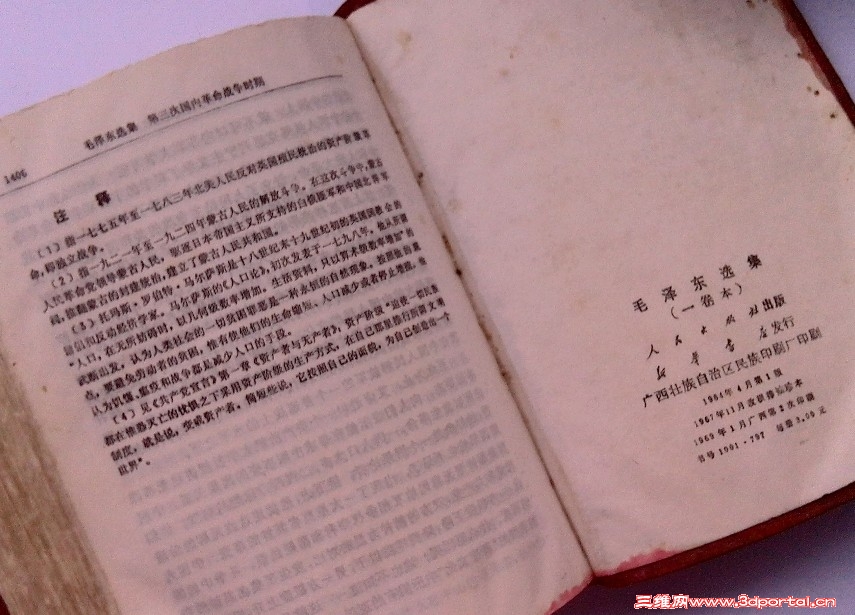 1406
毛泽东选集 第三次国内革命战争时期
注 释
〔1〕指一七七五年至一七八三年北美人民反对英国殖民统治的资产阶级革
命，即独立战争。
〔2〕指一九二一年至一九二四年蒙古人民的解放斗争。在这次斗争中，蒙古
人民革命党领导蒙古人民，驱逐日本帝国主义所支持的白俄匪军和中国北洋军
阀，推翻蒙古的封建统治，建立了蒙古人民共和国。
〔3〕托玛斯·罗伯特·马尔萨斯是十八世纪末十九世纪初的英国国教会的
僧侣和反动经济学家。马尔萨斯的《人口论》，初次发表于一七九八年。他从所谓
“人口，在无所妨碍时，以几何级数率增加。生活资料，只以算术级数率增加”的
武断出发，认为人类社会的一切贫困罪恶是一种永恒的自然现象。按照他的观
点，要避免劳动者的贫困，唯有使他们的生命缩短、人口减少或者停止增殖。他
认为饥馑、瘟疫和战争都是减少人口的手段。
〔4〕见《共产党宣言》第一章《资产者与无产者》，资产阶级“迫使一切民族
都在惟恐灭亡的忧惧之下采用资产阶级的生产方式，在自己那里推行所谓文明
制度，就是说，变成资产者。简短些说，它按照自己的面貌，为自己创造出一个
世界”。
毛泽东选集
(一卷本)
人民出版社出版
新华书店发行
广西壮族自治区民族印刷厂印刷
1964年4月第1版
1967年11月改横排袖珍本
1969年1月广西第2次印刷
书号1001·797 每册3.00元
三维网www.3dportal.cn